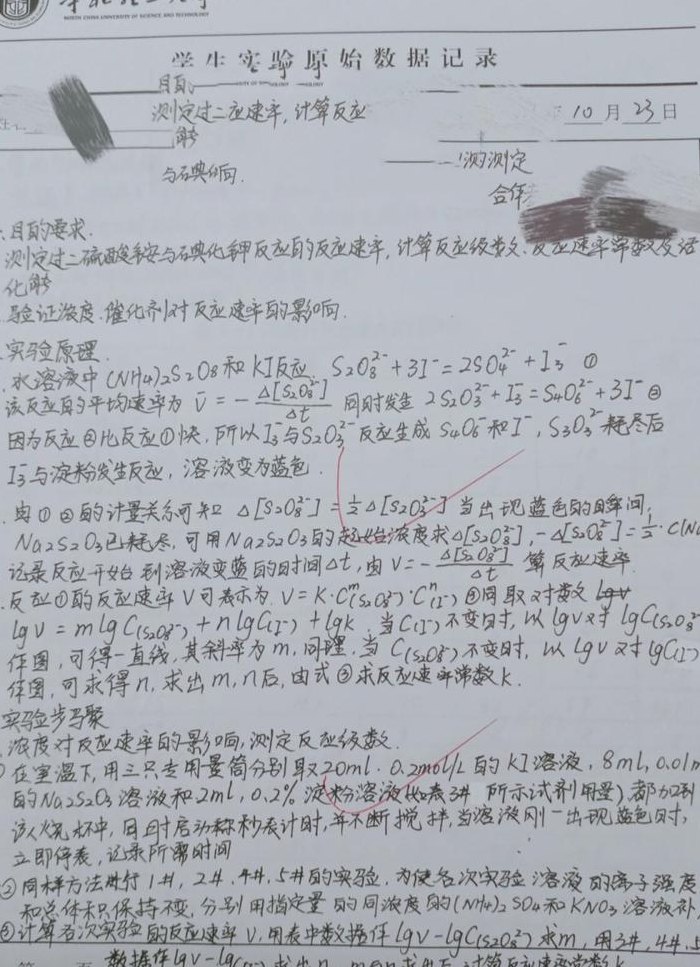 NORTH CHINA UNIVERSITY OF SCIENCE AND TECHNOLOGY
学生实验原始数据记录
测定过二应速率,计算反应
10月23日
测定
目的要求.
测定过二硫酸铵与碘化钾反应的反应速率,计算反应级数、反应速率常数及活
化
验证浓度、催化剂对反应速率的影响.
实验原理.
水溶液中(NH4)2S2O8和KI反应. S₂O₈²⁻+3I⁻=2SO₄²⁻+I₃⁻ ①
该反应的平均速率为 V̄=-Δ[S₂O₈²⁻]/Δt 同时发生 2S₂O₃²⁻+I₃⁻=S₄O₆²⁻+3I⁻②
因为反应②比反应①快,所以I₃⁻与S₂O₃²⁻反应生成S₄O₆⁻和I⁻,S₃O₃²⁻耗尽后
I₃⁻与淀粉发生反应,溶液变为蓝色.
由①②的计量关系可知 Δ[S₂O₈²⁻]=½Δ[S₂O₃²⁻] 当出现蓝色的瞬间,
Na₂S₂O₃已耗尽,可用Na₂S₂O₃的起始浓度求Δ[S₂O₈²⁻],-Δ[S₂O₈²⁻]=½·C(Na
记录反应开始到溶液变蓝的时间Δt,由V=-Δ[S₂O₈²⁻]/Δt 算反应速率.
反应①的反应速率V可表示为 V=K·Cᵐ(S₂O₈²⁻)·Cⁿ(I⁻) ③同取对数
lgV=mlgC(S₂O₈²⁻)+nlgC(I⁻)+lgk 当C(I⁻)不变时,以lgV对lgC(S₂O₈
作图,可得一直线,其斜率为m,同理.当C(S₂O₈²⁻)不变时,以lgV对lgC(I⁻)
作图,可求得n,求出m,n后,由式③求反应速率常数k.
实验步骤
浓度对反应速率的影响,测定反应级数.
在室温下,用三只专用量筒分别取20ml.0.2mol/L的KI溶液,8ml,0.01m
的Na₂S₂O₃溶液和2ml,0.2%淀粉溶液(如表 所示试剂用量)都加到
该烧杯中,同时启动秒表计时,并不断搅拌,当溶液刚一出现蓝色时,
立即停表,记录所需时间
②同样方法进行1#,2#,4#,5#的实验,为使各次实验溶液的离子强度
和总体积保持不变,分别用指定量的同浓度的(NH₄)₂SO₄和KNO₃溶液补
③计算各次实验的反应速率V,用表中数据作lgV-lgC(S₂O₈²⁻)求m,用3#,4#,5
数据作lgV-lgC(I⁻)求出n,